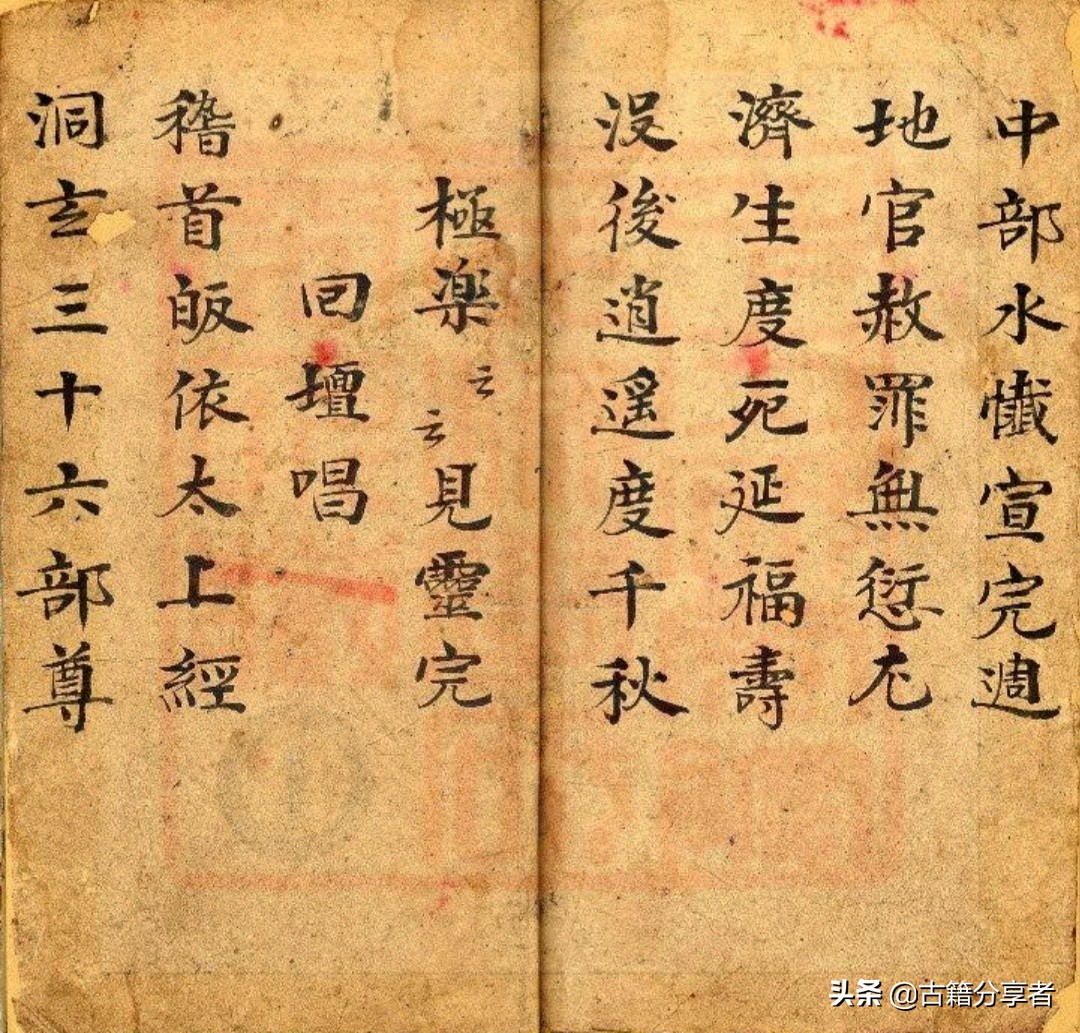 中部水懺宣完週
地官赦罪無愆尤
濟生度死延福壽
没後逍遥度千秋
極楽云云見靈完
囘壇唱
稽首皈依太上經
洞玄三十六部尊
头条 @古籍分享者